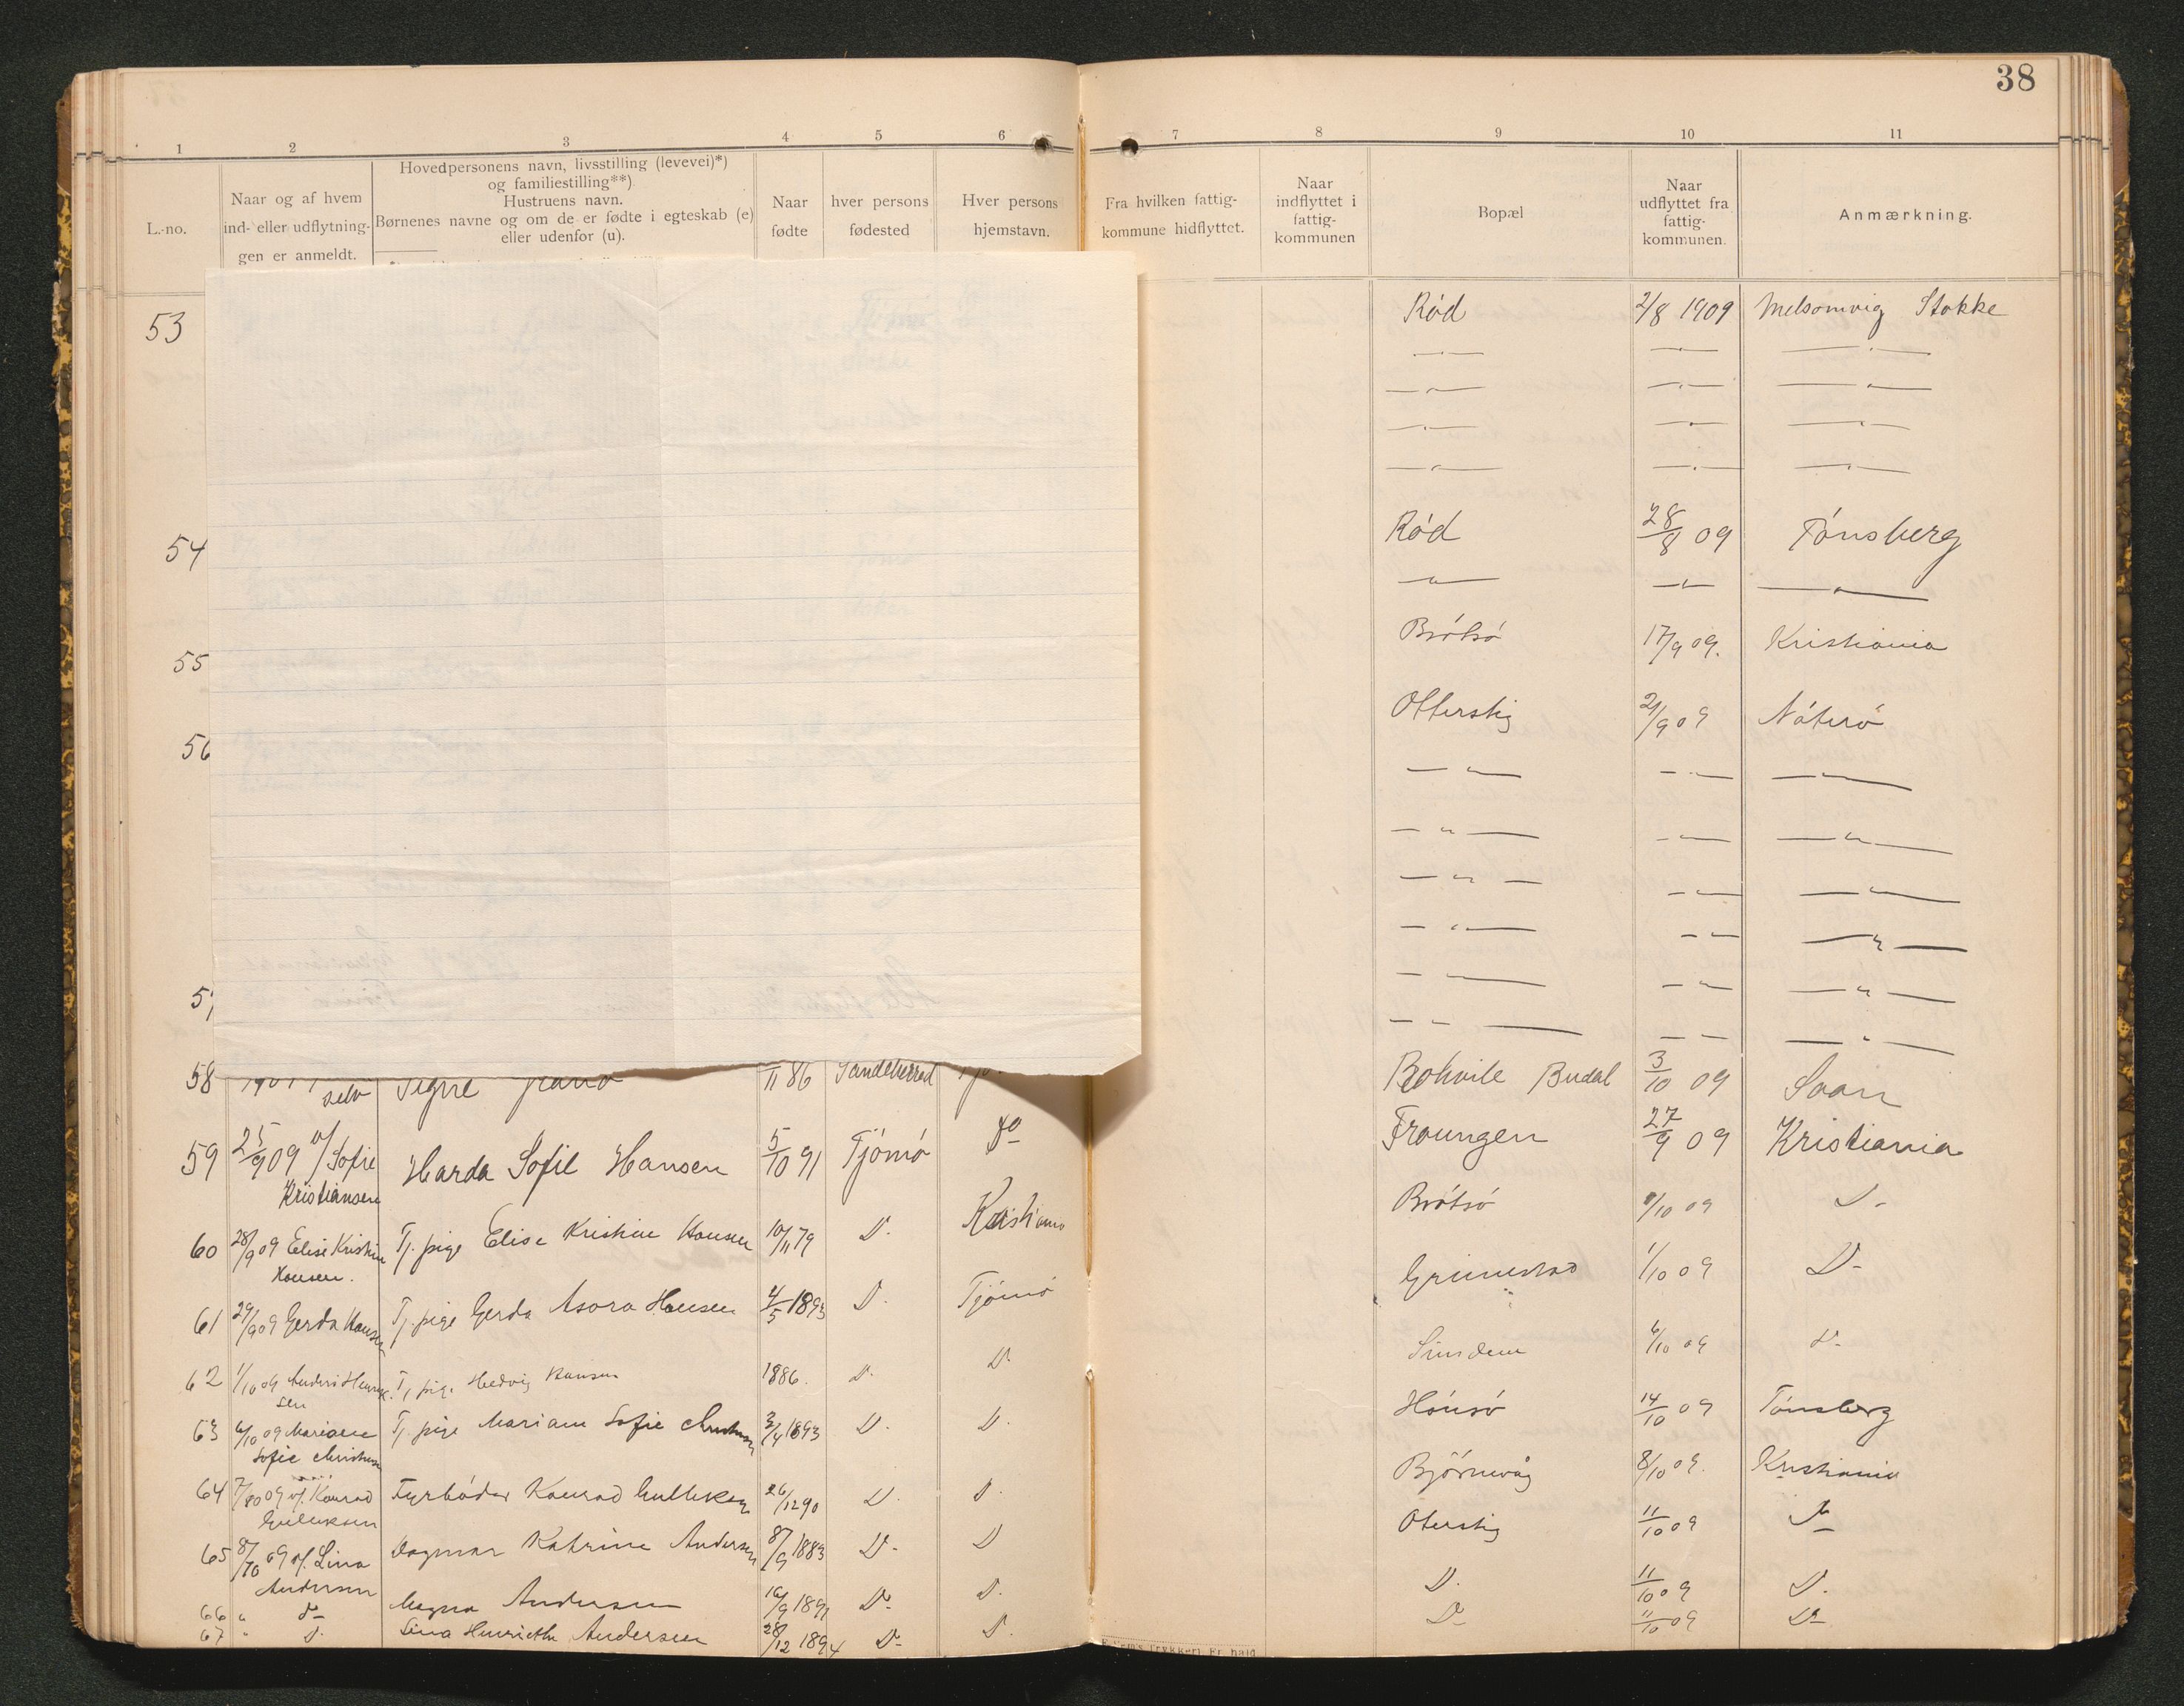 38
1 2 3 4 5 6 7 8 9 10 11
L.-no.
Naar og af hvem
ind- eller udflytning-
gen er anmeldt.
Hovedpersonens navn, livsstilling (levevei)*)
og familiestilling**)
Hustruens navn.
Børnenes navne og om de er fødte i egteskab (e)
eller udenfor (u).
Naar
fødte
hver persons
fødested
Hver persons
hjemstavn.
Fra hvilken fattig-
kommune hidflyttet.
Naar
indflyttet i
fattig-
kommunen
Bopæl
Naar
udflyttet fra
fattig-
kommunen.
Anmærkning.
53 Rød 2/8 1909 Melsomvig Stokke
54 Rød 28/8 09 Tønsberg
55 Brøtsø 17/9 09. Kristiania
56 Otterstig 21/9 09 Nøterø
58 selv Signe 11 86 Sandeherred Budal 3/10 09
59 25/9 09 v/ Sofie Harda Sofie Hansen 5/10 91 Tjømø do 27/9 09 Kristiania
Kristiansen
60 28/9 09 Elise Kristine Tj. pige Elise Kristine Hansen 10/11 79 D. Kristiania Brøtsø 9/10 09 D-
Hansen.
61 29/9 09 Gerda Hansen Tj. pige Gerda Asora Hansen 4/5 1893 D. Tjømø Grimestad 1/10 09 D-
62 1/10 09 Anders Henrik- Tj. pige Hedvig Hansen 1886. D. D. 6/10 09 D-
sen
63 6/10 09 Mariane Tj. pige Mariane Sofie 3/4 1893 D. D. Hønsø 14/10 09 Tønsberg
Sofie
64 7/10 09 v/. Konrad Fyrbøder Konrad Gulliksen 26/12 90 D. D. Bjørnevåg 8/10 09. Kristiania
Gulliksen
65 8/10 09 v/. Lina Dagmar Katrine Andersen 8/9 1883 D- D Oterstig 11/10 09 D-
Andersen
66 " D- Magna Andersen 16/9 1891 D- D. D. 11/10 09 D.
67 " D. Lina Henriethe Andersen 28/12 1894 D- D. D- 11/10 09 D-